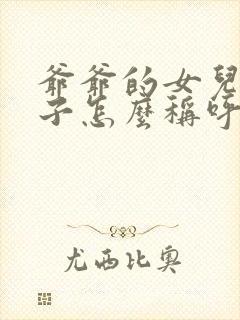 爺爺的女兒
子怎麼稱呼
尤西比奧